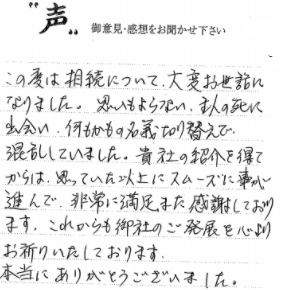 "声" 御意見・感想をお聞かせ下さい
この度は相続について、大変お世話に
なりました。思いもよらない、主人の死に
出会い、何もかもの名義切り替えで、
混乱していました。貴社の紹介を得て
からは、思っていた以上にスムーズに事が
進んで、非常に満足また感謝しており
ます。これからも御社のご発展を心より
お祈りいたしております。
本当にありがとうございました。